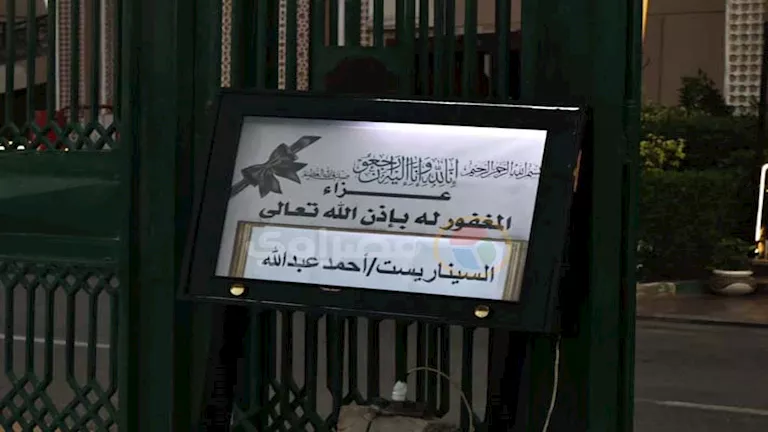 بسم الله الرحمن الرحيم
إنا لله وإنا إليه راجعون
صدق الله العظيم
عزاء
المغفور له بإذن الله تعالى
السيناريست/أحمد عبدالله